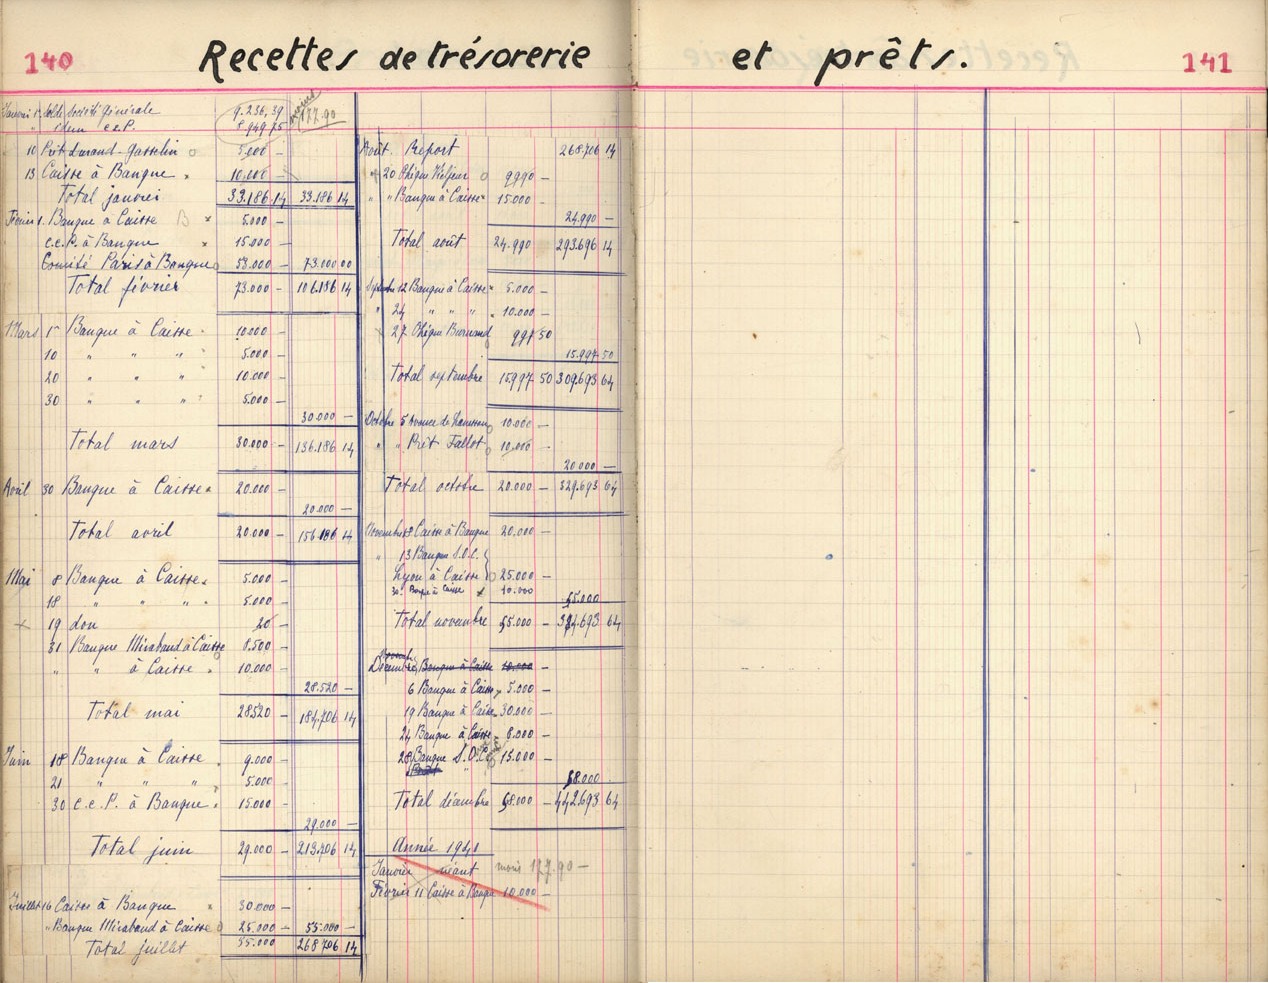 140
Recettes de trésorerie et prêts.
141
Janvier 1er Solde Société Générale 9.236,39
" idem c.c.P. 8.949 75
177.90
10 Prêt durand-Gasselin 5.000 -
13 Caisse à Banque 10.000 -
Total janvier 33.186.14 33.186 14
Février 1. Banque à Caisse 5.000 -
c.c.P. à Banque 15.000 -
Comité Paris à Banque 53.000 - 73.000 00
Total février 73.000 - 106.186 14
Mars 1er Banque à Caisse 10.000 -
10 " " " 5.000 -
20 " " " 10.000 -
30 " " " 5.000 -
30.000 -
Total mars 30.000 - 136.186 14
Avril 30 Banque à Caisse 20.000 -
20.000 -
Total avril 20.000 - 156.186 14
Mai 8 Banque à Caisse 5.000 -
18 " " " 5.000 -
19 don 20 -
31 Banque Mirabaud à Caisse 8.500
" " à Caisse 10.000 -
28.520 -
Total mai 28520 - 184.706 14
Juin 18 Banque à Caisse 9.000 -
21 " " " 5.000 -
30 c.c.P. à Banque 15.000 -
29.000 -
Total juin 29.000 - 213.706 14
Juillet 16 Caisse à Banque 30.000 -
" Banque Mirabaud à Caisse 25.000 - 55.000 -
Total juillet 55.000 268706 14
Août. Report 268.706 14
20 Chèque 9990 -
" " Banque à Caisse 15.000 -
24.990 -
Total août 24.990 - 293.696 14
12 Banque à Caisse 5.000 -
" 24 " " " 10.000 -
27 Chèque 997 50
15.997.50
Total septembre 15997 50 309.693 64
Octobre 5 Avance de 10.000 -
" " Prêt Fallot 10.000 -
20.000 -
Total octobre 20.000 - 329.693 64
Novembre 8 Caisse à Banque 20.000 -
" 13 Banque S.O.C.
Lyon à Caisse 25.000 -
30 Banque à Caisse 10.000
55.000
Total novembre 55.000 - 384.693 64
Décembre Banque à Caisse 10.000 -
6 Banque à Caisse 5.000 -
19 Banque à Caisse 30.000 -
24 Banque à Caisse 8.000 -
28 Banque S.O.C. 15.000 -
58.000 -
Total décembre 58.000 - 442.693 64
Année 1940
Janvier néant moins 177.90 -
Février 11 Caisse à Banque 10.000 -